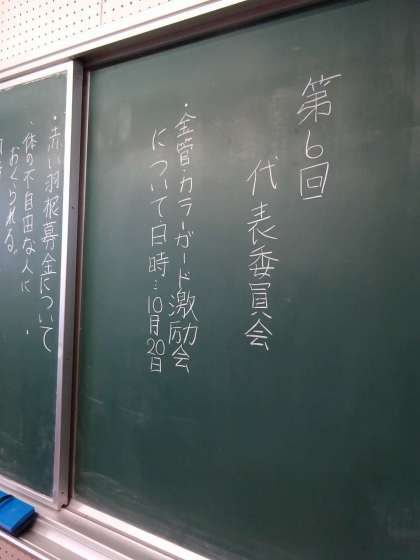 第6回
代表委員会
・金管・カラーガード激励会
について・日時：10月20日
・赤い羽根募金について
・体の不自由な人に
おくられる。